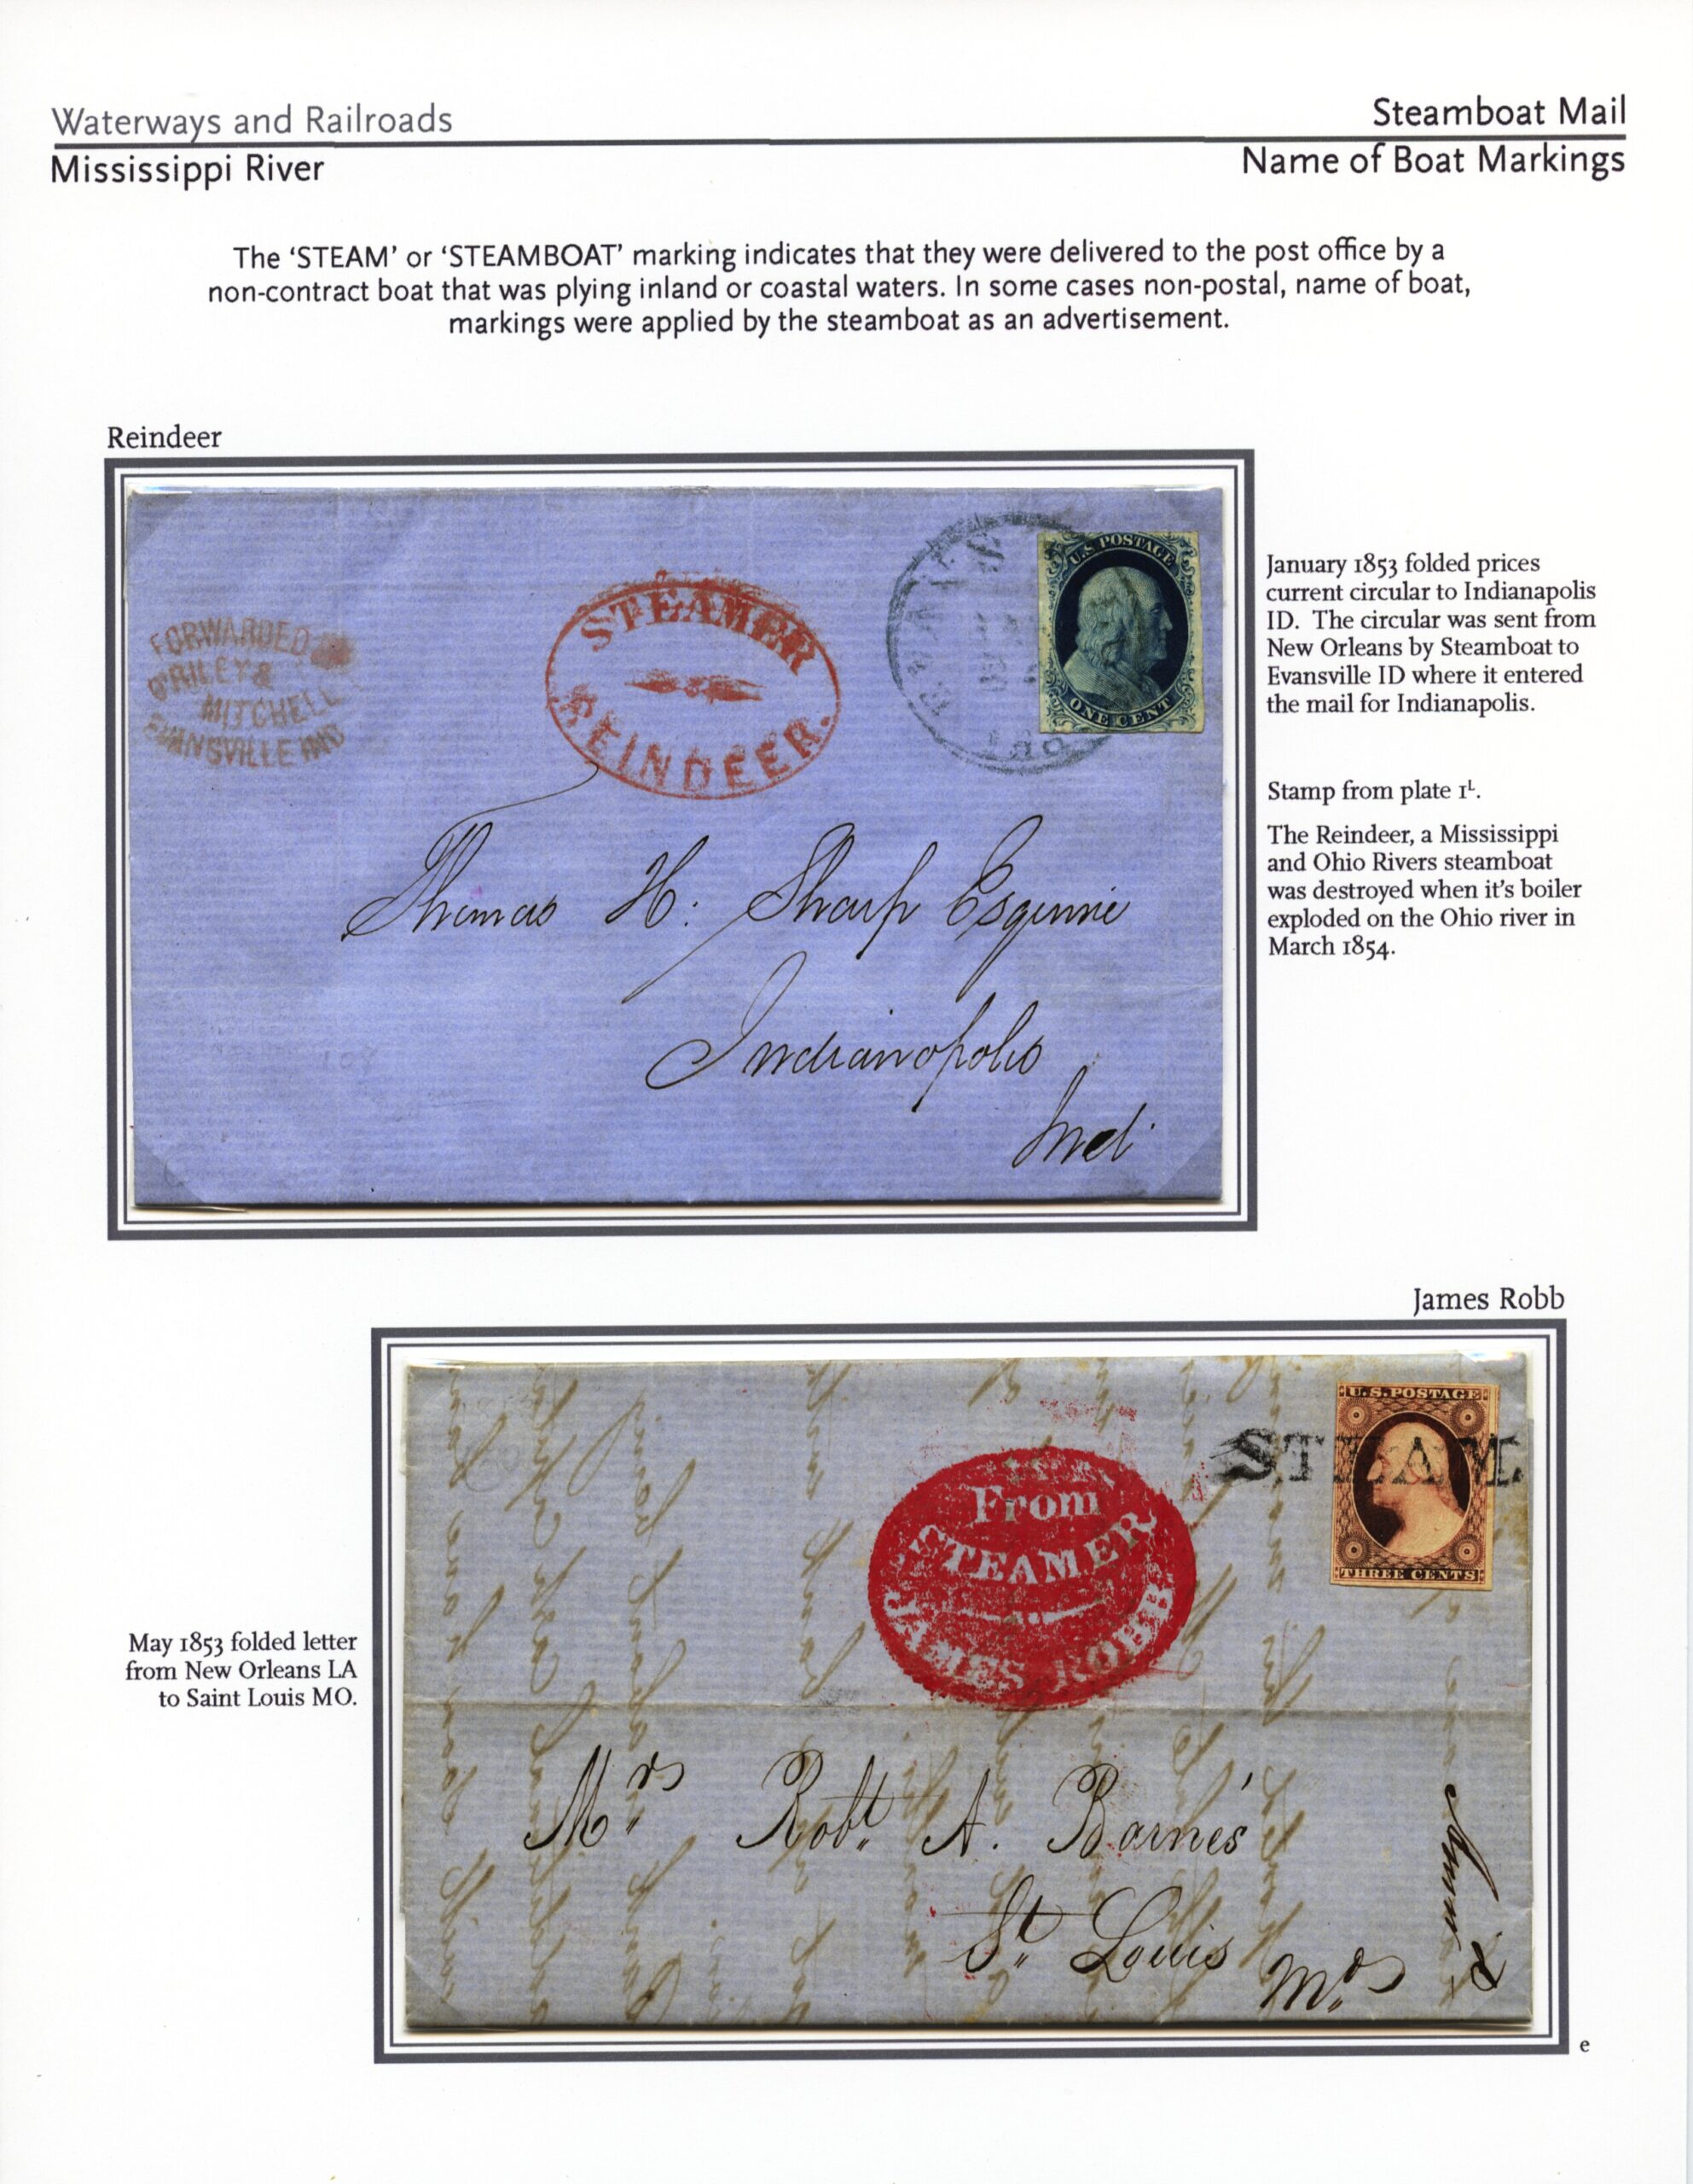 Waterways and Railroads
Steamboat Mail
Mississippi River
Name of Boat Markings
The ‘STEAM’ or ‘STEAMBOAT’ marking indicates that they were delivered to the post office by a
non-contract boat that was plying inland or coastal waters. In some cases non-postal, name of boat,
markings were applied by the steamboat as an advertisement.
Reindeer
FORWARDED
O'RILEY &
MITCHELL
EVANSVILLE IND
STEAMER
REINDEER.
U.S. POSTAGE
ONE CENT
Thomas H: Sharp Esquire
Indianopolis
Ind.
107
January 1853 folded prices
current circular to Indianapolis
ID. The circular was sent from
New Orleans by Steamboat to
Evansville ID where it entered
the mail for Indianapolis.
Stamp from plate 1L.
The Reindeer, a Mississippi
and Ohio Rivers steamboat
was destroyed when it's boiler
exploded on the Ohio river in
March 1854.
James Robb
From
STEAMER
JAMES ROBB
STEAM.
U.S. POSTAGE
THREE CENTS
Mrs Robt. A. Barnes
St. Louis
Mo
May 1853 folded letter
from New Orleans LA
to Saint Louis MO.
e